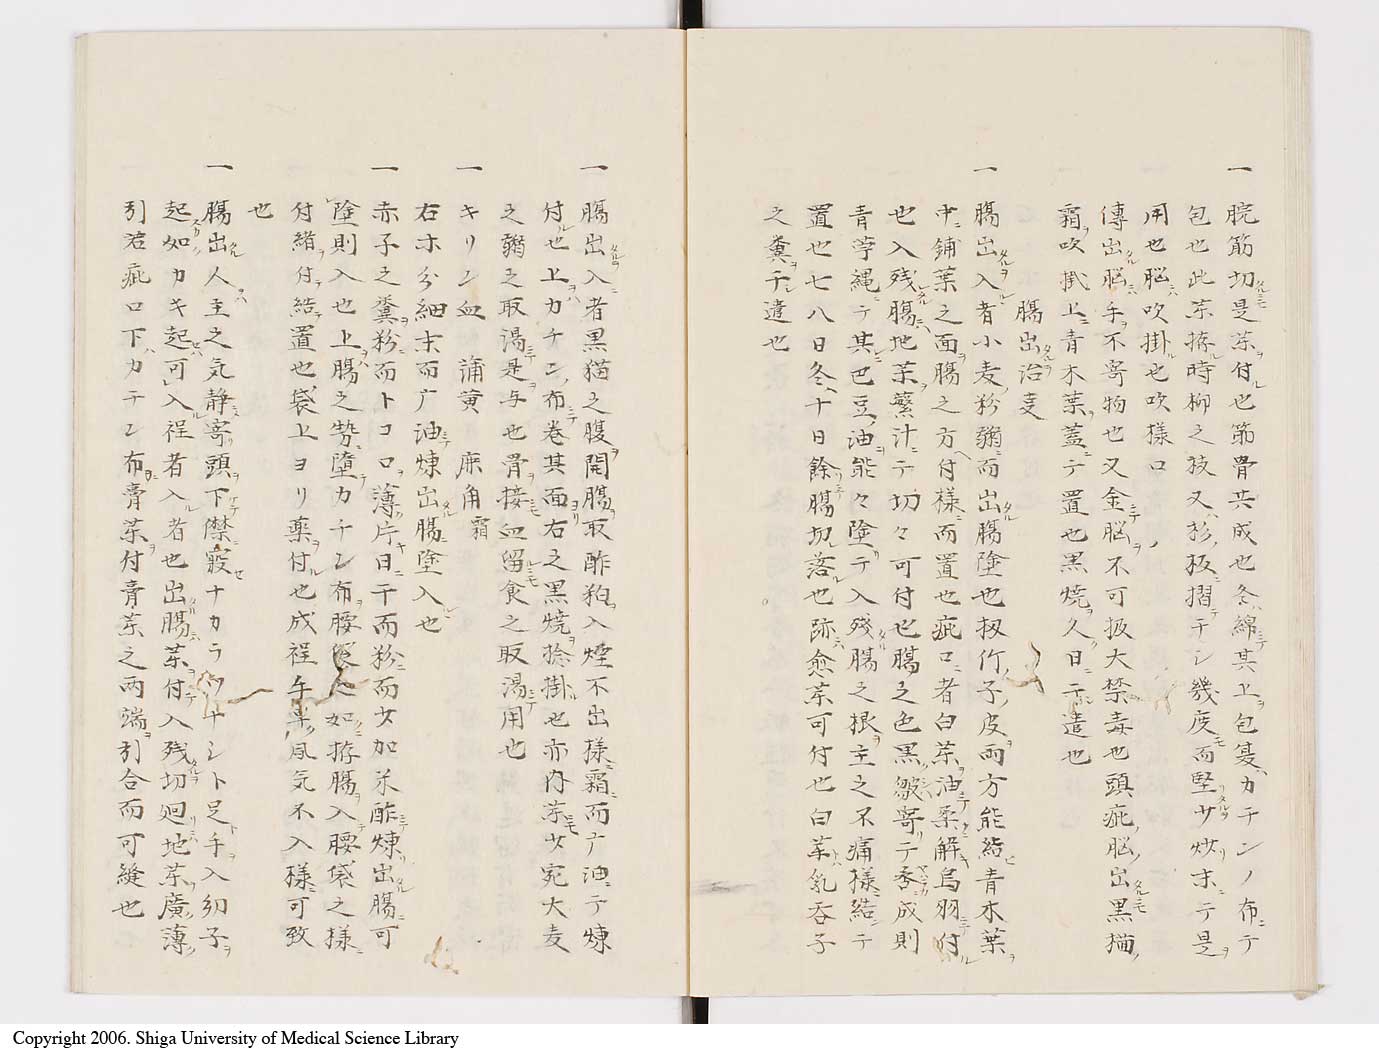 一 腕筋切是茶付也節骨共成也冬綿其上包𮅕カチンノ布ニテ
包也此茶搗時柳之技又杉板摺干シ幾度而堅サ炒末テ是
用也脳吹掛也吹様口
傳出脳手不寄物也又金脳不可扱大禁毒也頭疵脳出黒猫
霜吹掛上青木葉蓋テ置也黒焼久日干遣也
腸出治事
一 腸出入者小麦粉粥而出腸塗也扨竹子皮両方能結青木葉
中鋪葉之面腸之方付様而置也疵口者白茶油柔解烏羽付
也入残腸地茶蘩汁テ切々可付也腸之色黒皺寄テ黍成則
青苧縄テ其巴豆油能々塗テ入残腸之根主之不痛様結テ
置也七八日冬十日餘腸切落也跡愈茶可付也白茶乳呑子
之糞干遣也
一 腸出入者黒猫之腹開腸取酢粕入煙不出様霜而ゴ油テ煉
付也上カチン布巻其面右之黒焼捻掛也亦丹茶少宛大麦
之粥之取湯是与也骨接血留食之取湯用也
一 キリン血 蒲黄 麻角霜
右木分細末而ゴ油煉出腸塗入也
一 赤子之糞粉而トコロ薄片日干而粉而少加米酢煉出腸可
塗則入也上腸之勢墮カチン布腰袋也如捺腸入腰袋之様
付緒付結置也袋上ヨリ薬付也成程手柔風気不入様可致
也
一 腸出人主之気静寄頭下襟寂ナカラウナシト足手入幼子
起如カキ起可入程者入者也出腸茶付入残切廻地茶廣薄
引疵口下カチン布膏茶付膏茶之両端引合而可縫也
Copyright 2006. Shiga University of Medical Science Library